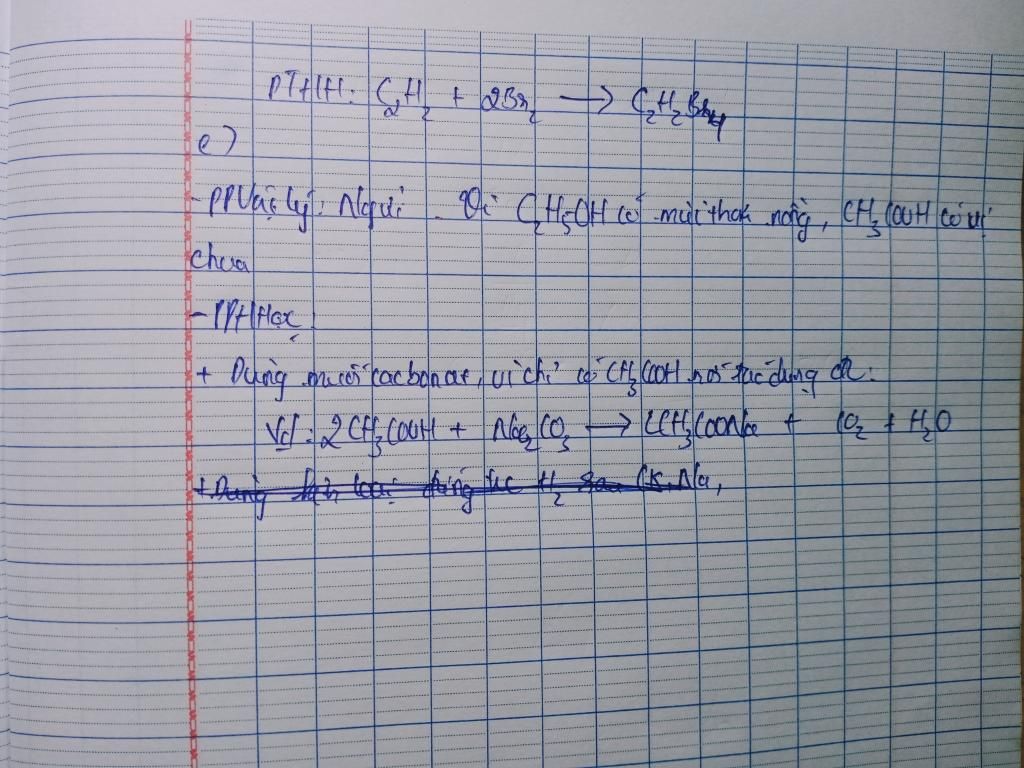 PTHH: C₂H₂ + 2Br₂ → C₂H₂Br₄
e)
- PP Vật lý: Ngửi. Vì C₂H₅OH có mùi thơm nồng, CH₃COOH có vị
chua
- PP Hóa học:
+ Dùng muối cacbonat, vì chỉ có CH₃COOH mới tác dụng đc.
Vd: 2CH₃COOH + Na₂CO₃ → CH₃COONa + CO₂ + H₂O
+ Dùng kim loại đứng trc H₂ K, Na,